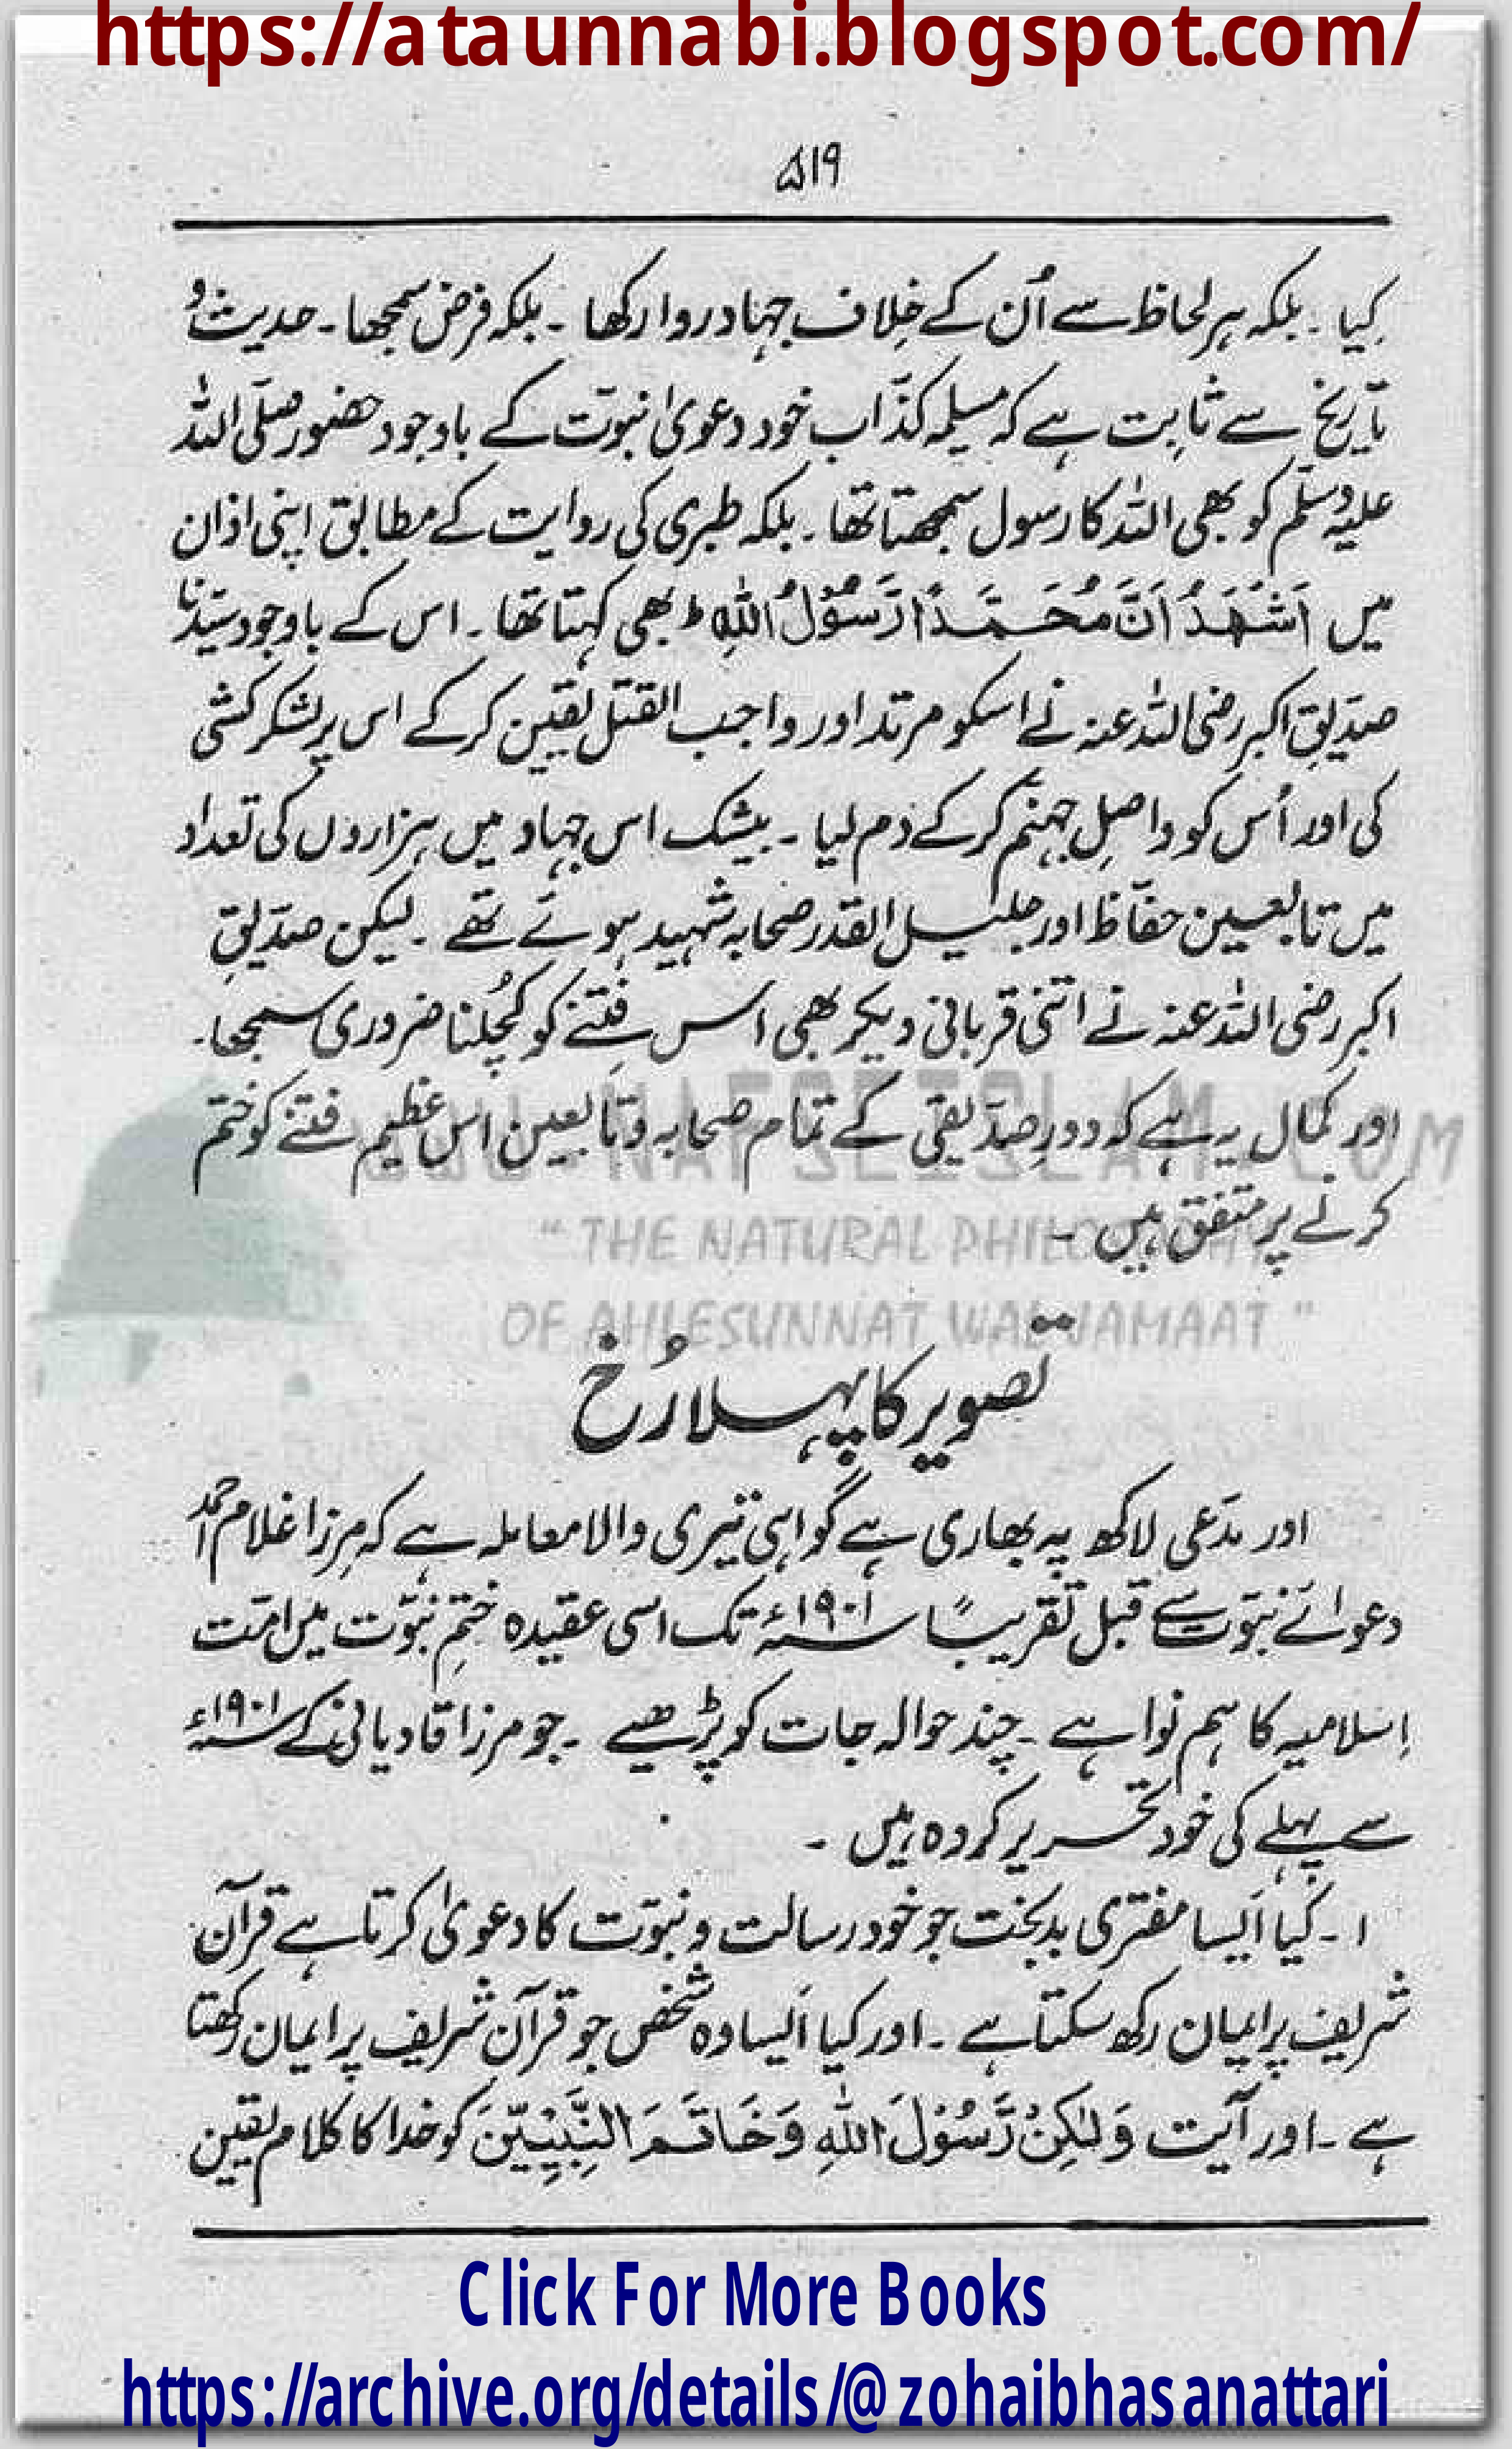 https://ataunnabi.blogspot.com/
۵۱۹
کیا ۔ بلکہ ہر لحاظ سے اُن کے خِلاف جہاد روا رکھا ۔ بلکہ فرض سمجھا ۔ حدیث و
تاریخ سے ثابت ہے کہ مسیلمہ کذّاب خود دعویٰ نبوّت کے باوجود حضور صلّی اللہ
علیہ وسلّم کو بھی اللہ کا رسول سمجھتا تھا ۔ بلکہ طبری کی روایت کے مطابق اپنی اذان
میں اَشْھَدُ اَنَّ مُحَمَّدًا رَّسُوْلُ اللّٰہِ ط بھی کہتا تھا ۔ اس کے باوجود سیّدنا
صدّیقِ اکبر رضی اللہ عنہ نے اسکو مرتد اور واجب القتل یقین کر کے اس پر لشکر کشی
کی اور اُس کو واصلِ جہنّم کر کے دم لیا ۔ بیشک اس جہاد میں ہزاروں کی تعداد
میں تابعین حفّاظ اور جلیل القدر صحابہ شہید ہوئے تھے ۔ لیکن صدّیقِ
اکبر رضی اللہ عنہ نے اتنی قربانی دیکر بھی اس فِتنے کو کُچلنا ضروری سمجھا ۔
اور کمال یہ ہے کہ دورِ صدّیقی کے تمام صحابہ و تابعین اس عظیم فتنے کو ختم
WWW.NAFSEISLAM.COM
کرنے پر متفق ہیں ۔
“ THE NATURAL PHILOSOPHY
OF AHLESUNNAT WAL JAMAAT ”
تصویر کا پہلا رُخ
اور مدّعی لاکھ پہ بھاری ہے گواہی تیری والا معاملہ ہے کہ مرزا غلام احمد
دعوائے نبوّت سے قبل تقریبًا سنہ ۱۹۰۱ء تک اسی عقیدہ ختمِ نبوّت میں امّت
اِسلامیہ کا ہم نوا ہے ۔ چند حوالہ جات کو پڑھیے ۔ جو مرزا قادیانی کے سنہ ۱۹۰۱ء
سے پہلے کی خود تحریر کردہ ہیں ۔
۱ ۔ کیا اَیسا مفتری بدبخت جو خود رسالت و نبوّت کا دعویٰ کرتا ہے قرآن
شریف پر ایمان رکھ سکتا ہے ۔ اور کیا اَیسا وہ شخص جو قرآن شریف پر ایمان رکھتا
ہے ۔ اور آیت وَلٰکِنْ رَّسُوْلَ اللّٰہِ وَخَاتَمَ النَّبِیِّیْنَ کو خدا کا کلام یقین
Click For More Books
https://archive.org/details/@zohaibhasanattari